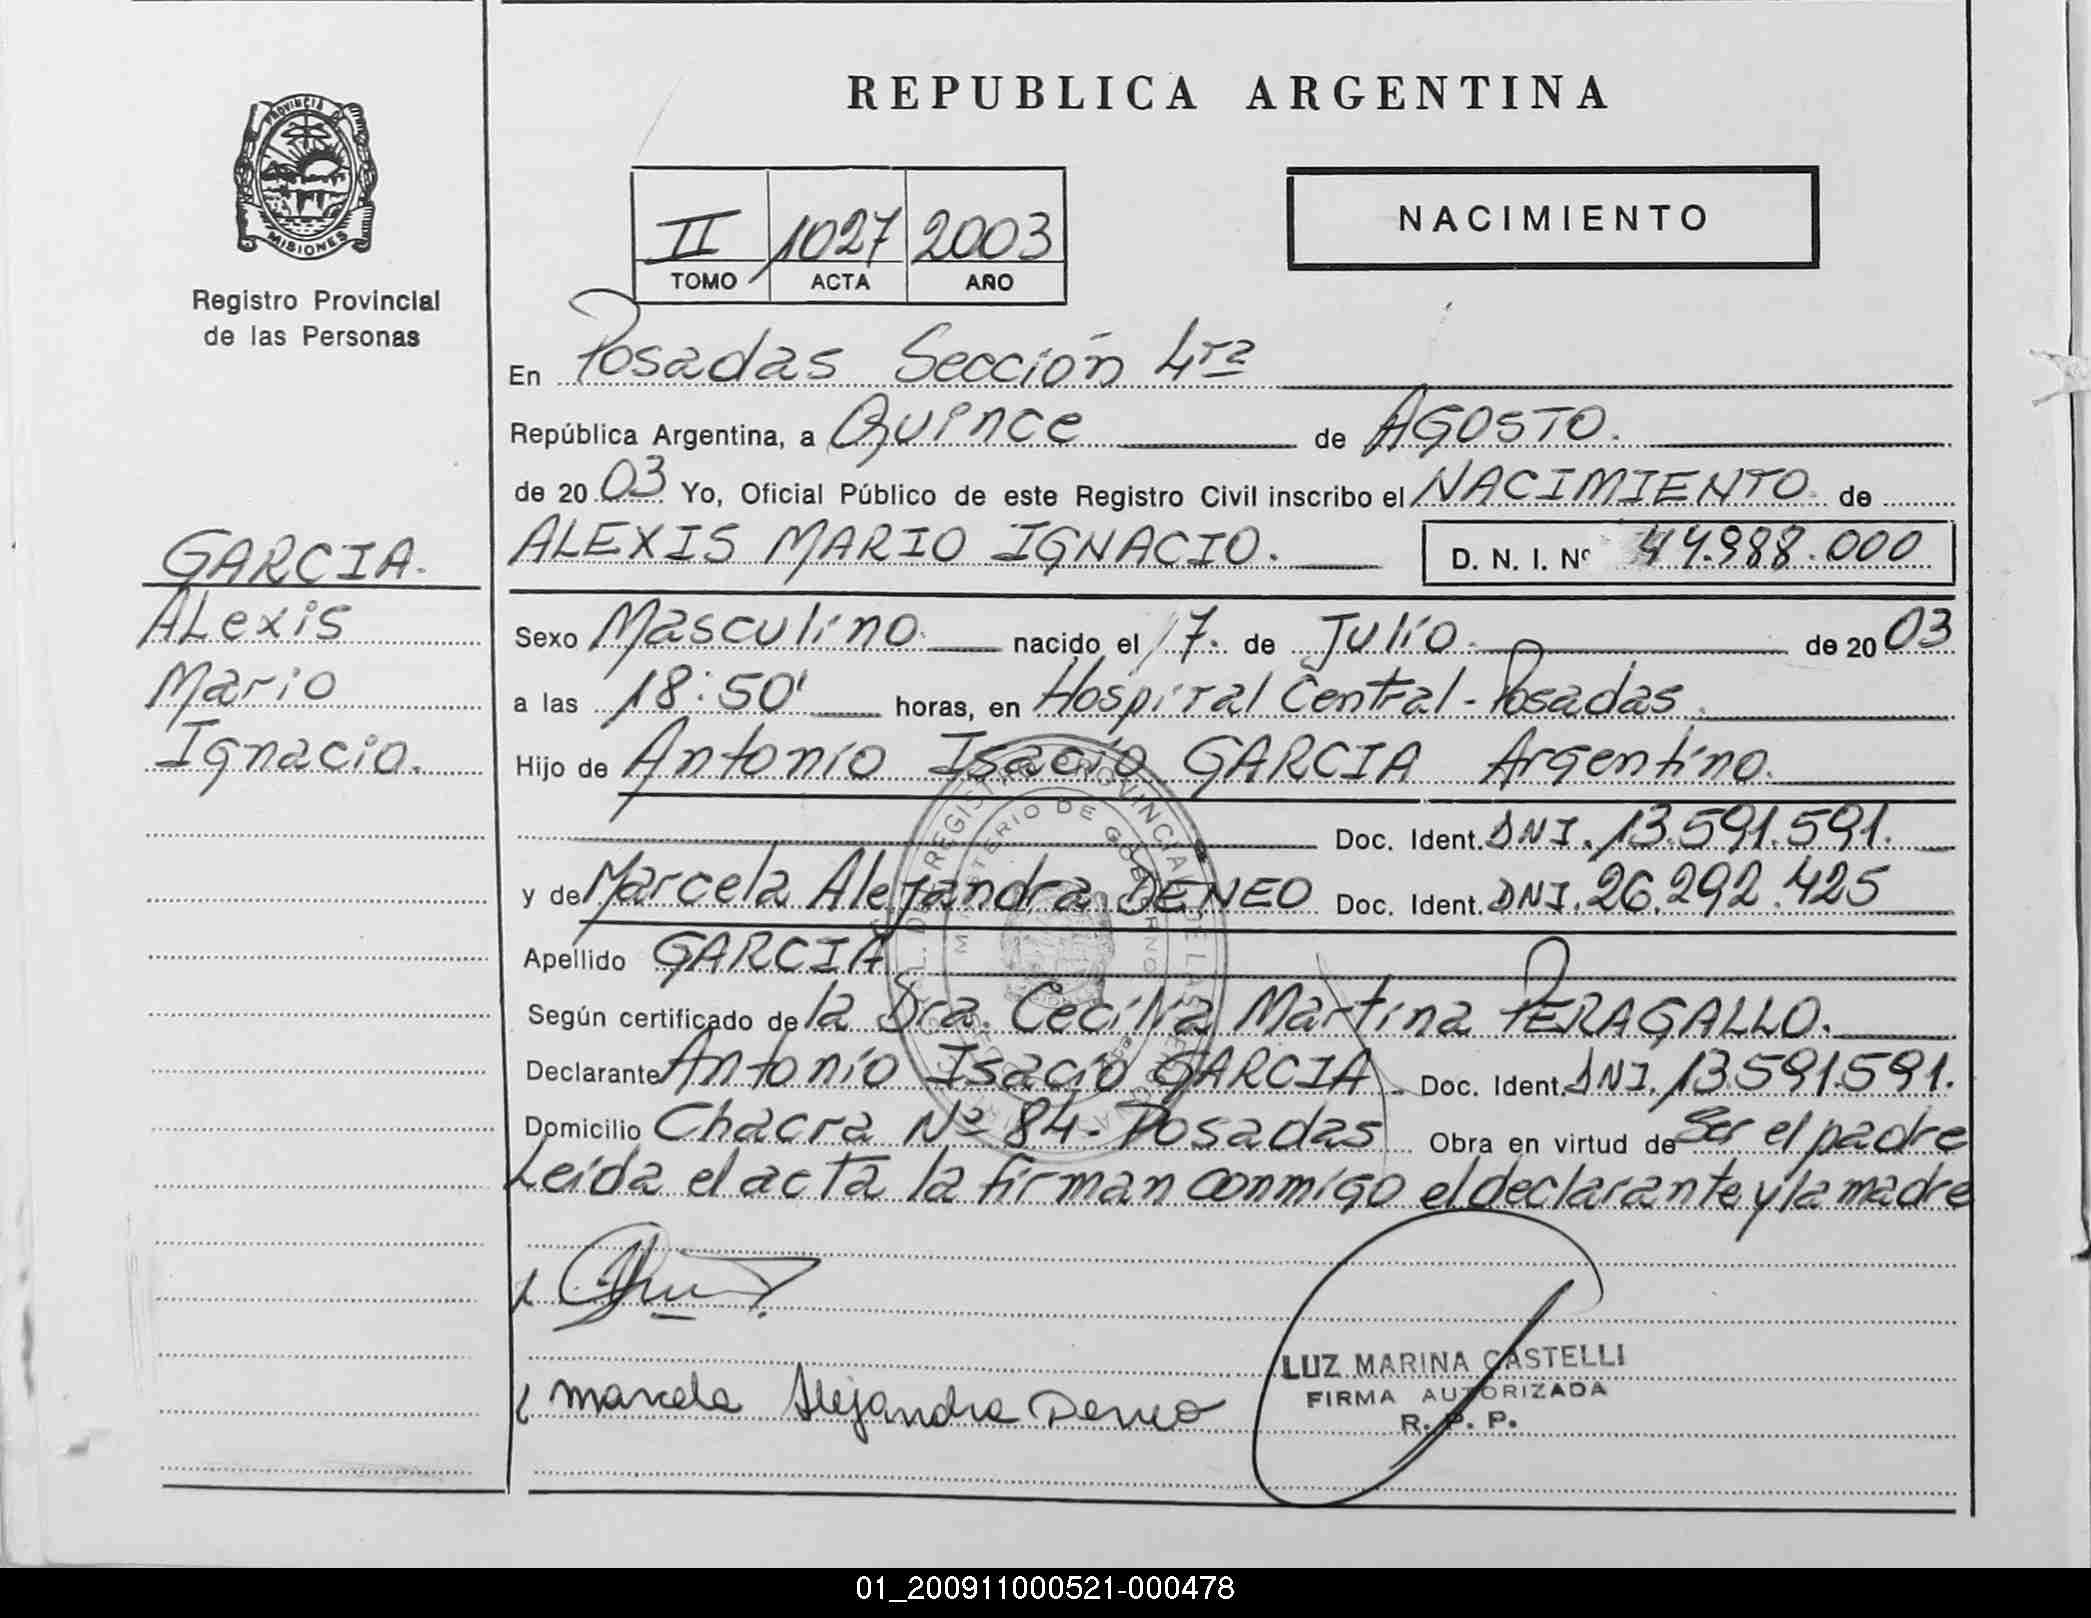 REPUBLICA ARGENTINA
PROVINCIA DE
MISIONES
Registro Provincial
de las Personas
II 1027 2003
TOMO ACTA AÑO
NACIMIENTO
En Posadas Sección 4ta
República Argentina, a Quince de AGOSTO.
de 20 03 Yo, Oficial Público de este Registro Civil inscribo el NACIMIENTO de
ALEXIS MARIO IGNACIO. D. N. I. Nº 44.988.000
GARCIA.
ALexis
Mario
Ignacio.
Sexo Masculino. nacido el 17. de Julio. de 20 03
a las 18:50' horas, en Hospital Central - Posadas.
Hijo de Antonio Isacio GARCIA Argentino.
Doc. Ident. DNI. 13.591.591.
y de Marcela Alejandra DENEO Doc. Ident. DNI. 26.292.425
Apellido GARCIA
Según certificado de la Dra. Cecilia Martina PERAGALLO.
Declarante Antonio Isacio GARCIA Doc. Ident. DNI. 13.591.591.
Domicilio Chacra Nº 84 - Posadas Obra en virtud de Ser el padre
Leída el acta la firman conmigo el declarante y la madre
Marcela Alejandra Deneo
LUZ MARINA CASTELLI
FIRMA AUTORIZADA
R. P. P.
01_200911000521-000478